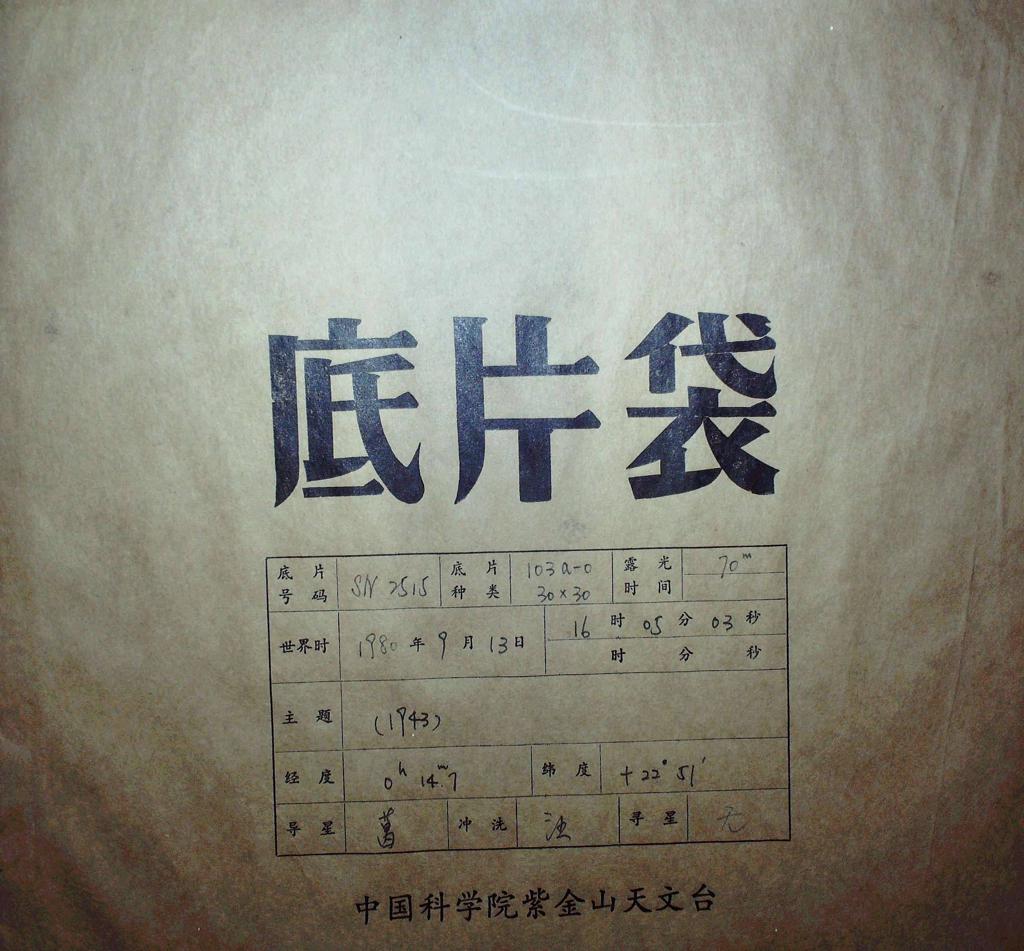 底片袋
底片号码 SN 2515 底片种类 103a-0 30×30 露光时间 70ᵐ
世界时 1980年9月13日 16时05分03秒
时 分 秒
主题 (1943)
经度 0ʰ 14ᵐ.7 纬度 +22°51′
导星 葛 冲洗 汪 寻星 无
中国科学院紫金山天文台